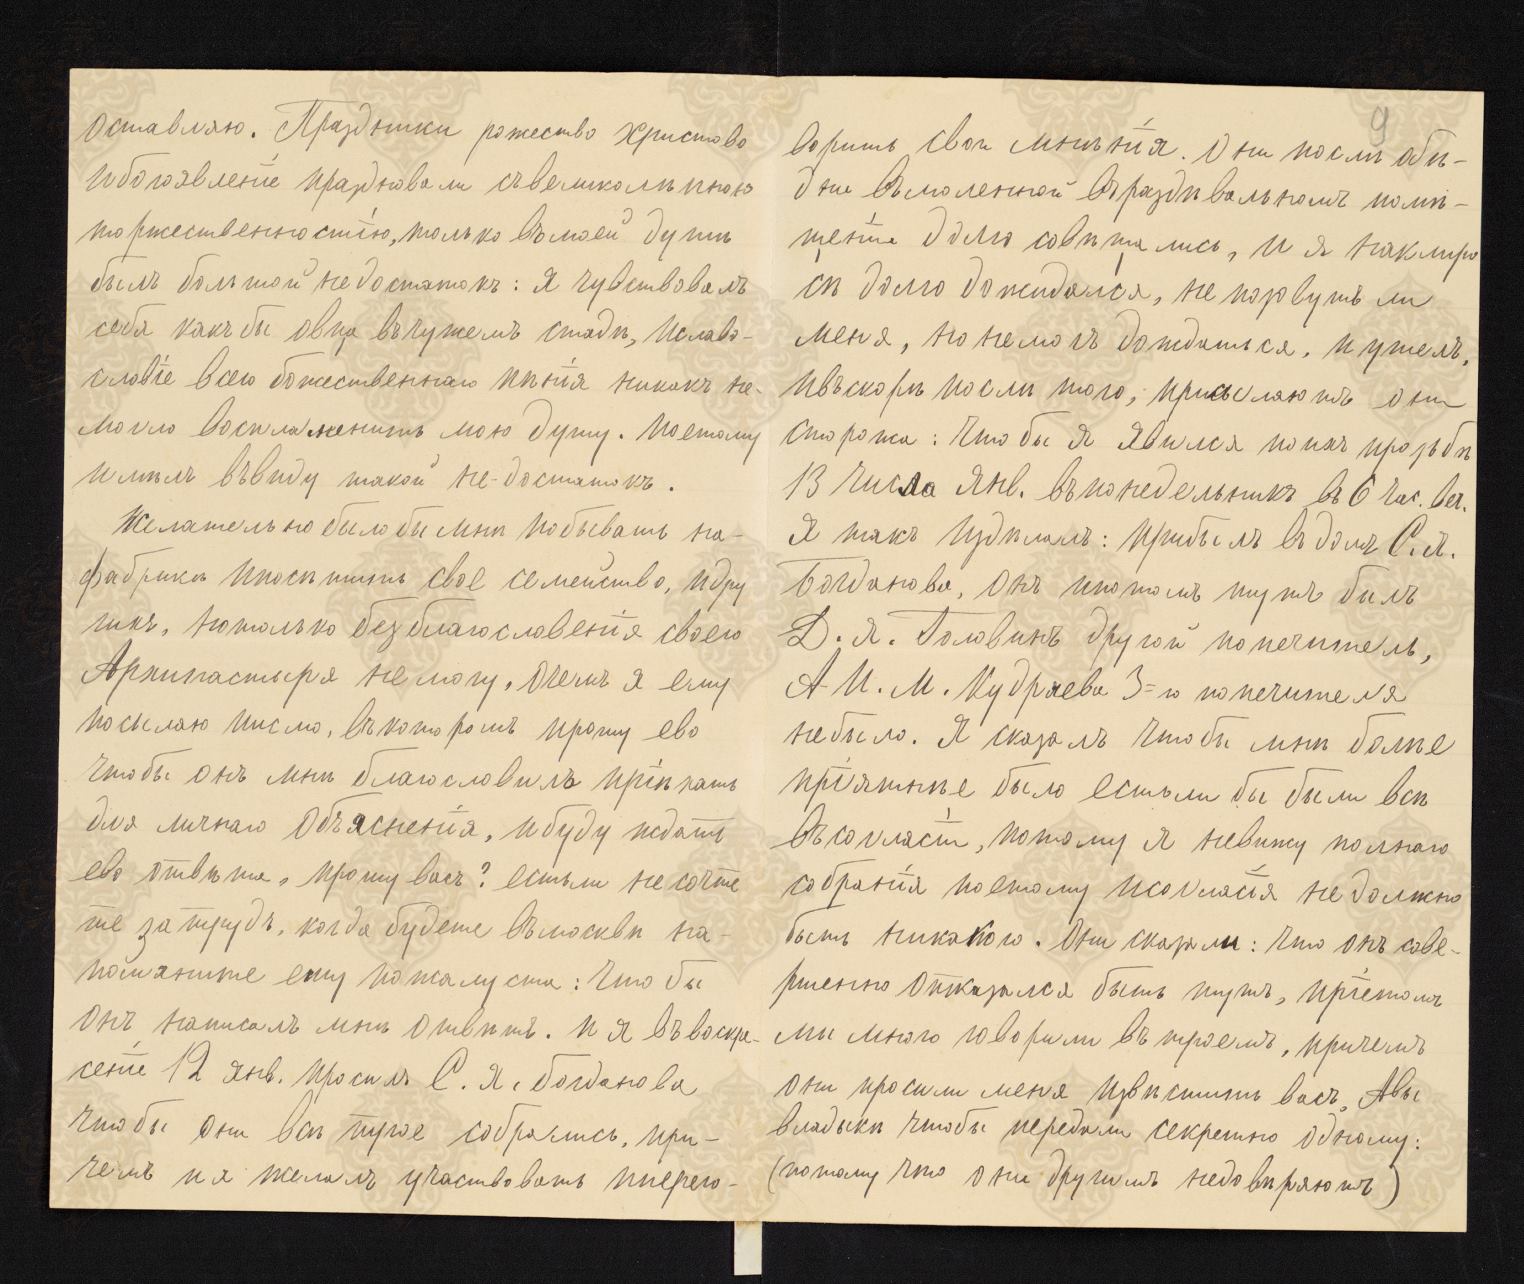 оставляю. Праздники рожество христово
ибогоявленіе праздновали съвеликолѣпною
торжественностію, только въмоей душѣ
былъ большой недостатокъ: я чувствовалъ
себя какъ бы овца въчужемъ стадѣ, иславо-
словіе всего божественнаго пѣнія никакъ не-
могло воспламенить мою душу. поетому
имѣлъ въвиду такой не-достатокъ.
Желательно былобы мнѣ побывать на-
фабрики ипосѣтить свое семейство, идру
гихъ, нотолько безъ благословенія своего
Архипастыря не могу, очемъ я ему
посылаю писмо, въкоторомъ прошу ево
чтобы онъ мнѣ благословилъ пріѣхать
для личнаго объясненія, ибуду ждать
ево отвѣта, прошу васъ? естьли не сочте
те затрудъ, когда будете въмосквѣ на-
помяните ему пожалуста: что бы
онъ написалъ мнѣ отвѣтъ. и я въвоскре-
сеніе 12 янв. просилъ С. Я. Богданова
чтобы они всѣ трое собрались, при-
чемъ и я желалъ участвовать ипереговорить
9
свои мнѣнія. они послѣ обѣ-
дни въмоленной въраздѣвальномъ помѣ-
щеніи долго совѣщались, и я наклиро
сѣ долго дожидался, не позовутъ ли
меня, но немогъ дождаться, и ушелъ,
ивъскорѣ послѣ того, присылаютъ они
сторожа: что бы я явился поихъ прозьбѣ
13 числа Янв. въпонедельникъ въ 6 час. веч.
Я такъ издѣлалъ: прибылъ въ домъ С. Я.
Богданова, онъ ипотомъ тутъ былъ
Д. Я. Головинъ другой попечитель,
А И. М. Кудряева 3=го попечителя
небыло. Я сказалъ чтобы мнѣ болѣе
пріятнѣе было естьли бы были всѣ
въсогласіи, потому я невижу полнаго
собранія поетому исогласія не должно
быть никакого. Они сказали: что онъ сове-
ршенно отказался быть тутъ, пріетомъ
мы много говорили въ троемъ, причемъ
они просили меня извѣстить васъ, Авы
владыкѣ чтобы передали секретно одному:
(потому что они другимъ недовѣряютъ)